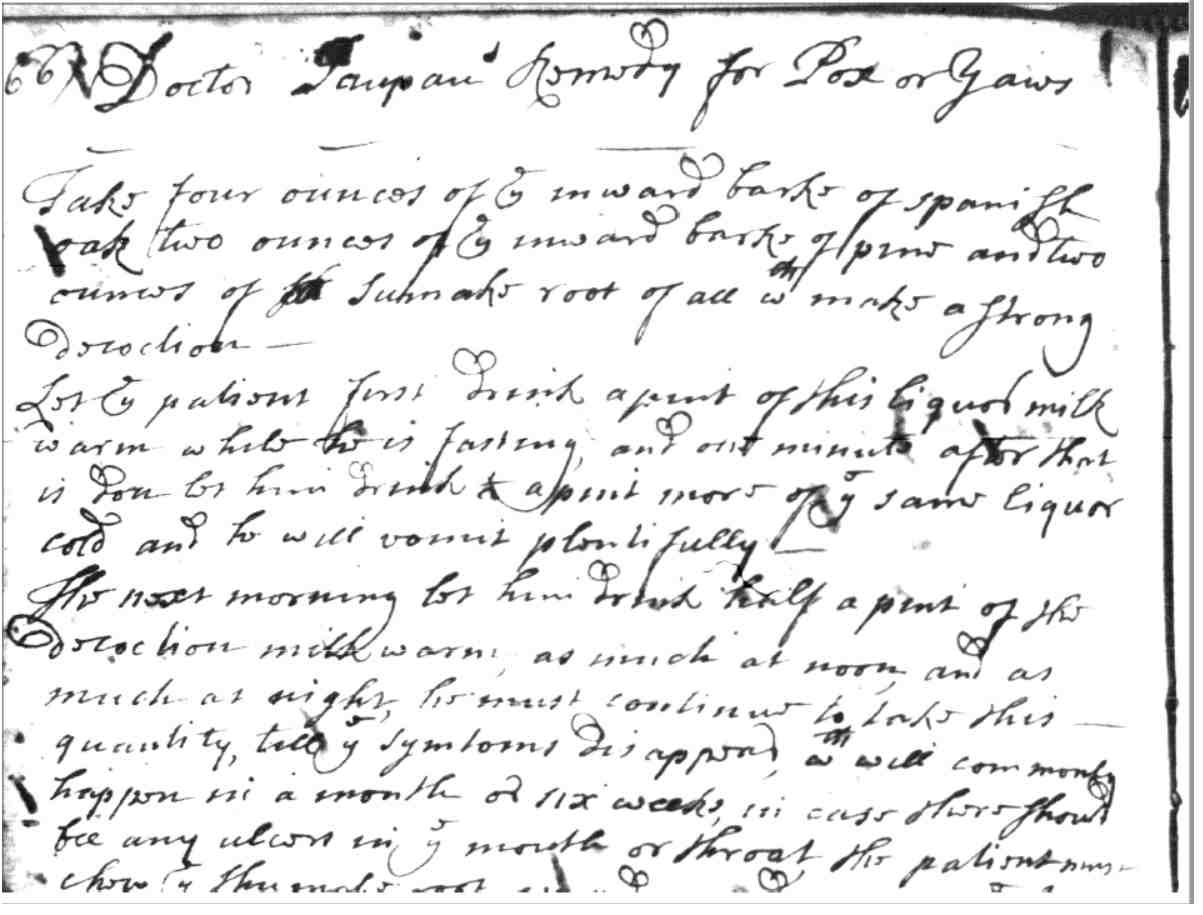 66 Doctor Papau's Remedy for Pox or Yaws
Take four ounces of ye inward barke of spanish
oak two ounces of ye inward barke of pine and two
ounces of Sumake root of all wch make a strong
decoction
Let ye patient first drink a pint of this liquor milk
warm while he is fasting, and one minute after that
is don let him drink a pint more of ye same liquor
cold and he will vomit plentifully
The next morning let him drink half a pint of the
decoction milk warm, as much at noon, and as
much at night, he must continue to take this
quantity, till ye symtoms disappear, wch will commonly
happen in a month or six weeks, in case there should
bee any ulcers in ye mouth or throat the patient must
chew ye shumake root